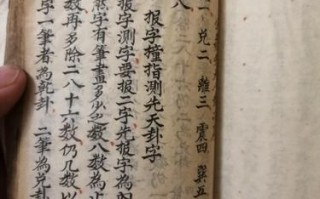 一 兑二 離三 震四 巽五
八
报字撞指測先天卦字
报字測字要报二字先报字為
字有筆畫多少之数八数為止
数再多除二八十六数仍几数以
字一筆者為乾卦 二筆為兑卦